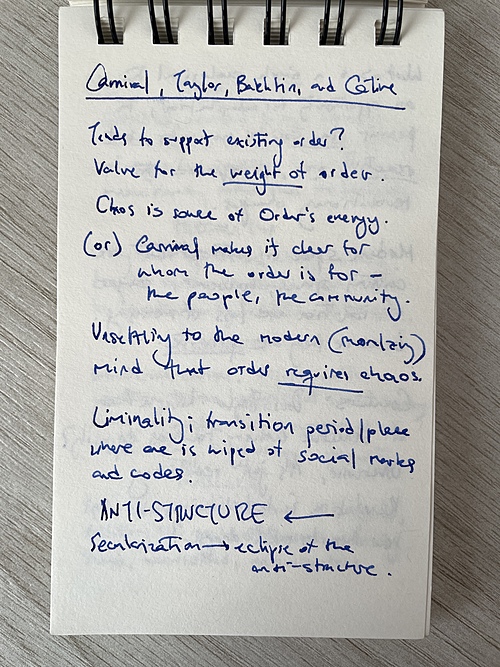 Carnival, Taylor, Bakhtin, and Celine
Tends to support existing order?
Value for the weight of order.
Chaos is source of Order's energy.
(or) Carnival makes it clear for
whom the order is for –
the people, the community.
Unsettling to the modern (moralizing)
mind that order requires chaos.
Liminality: transition period/place
where one is wiped of social marks
and codes.
ANTI-STRUCTURE ←
Secularization → eclipse of the
anti-structure.